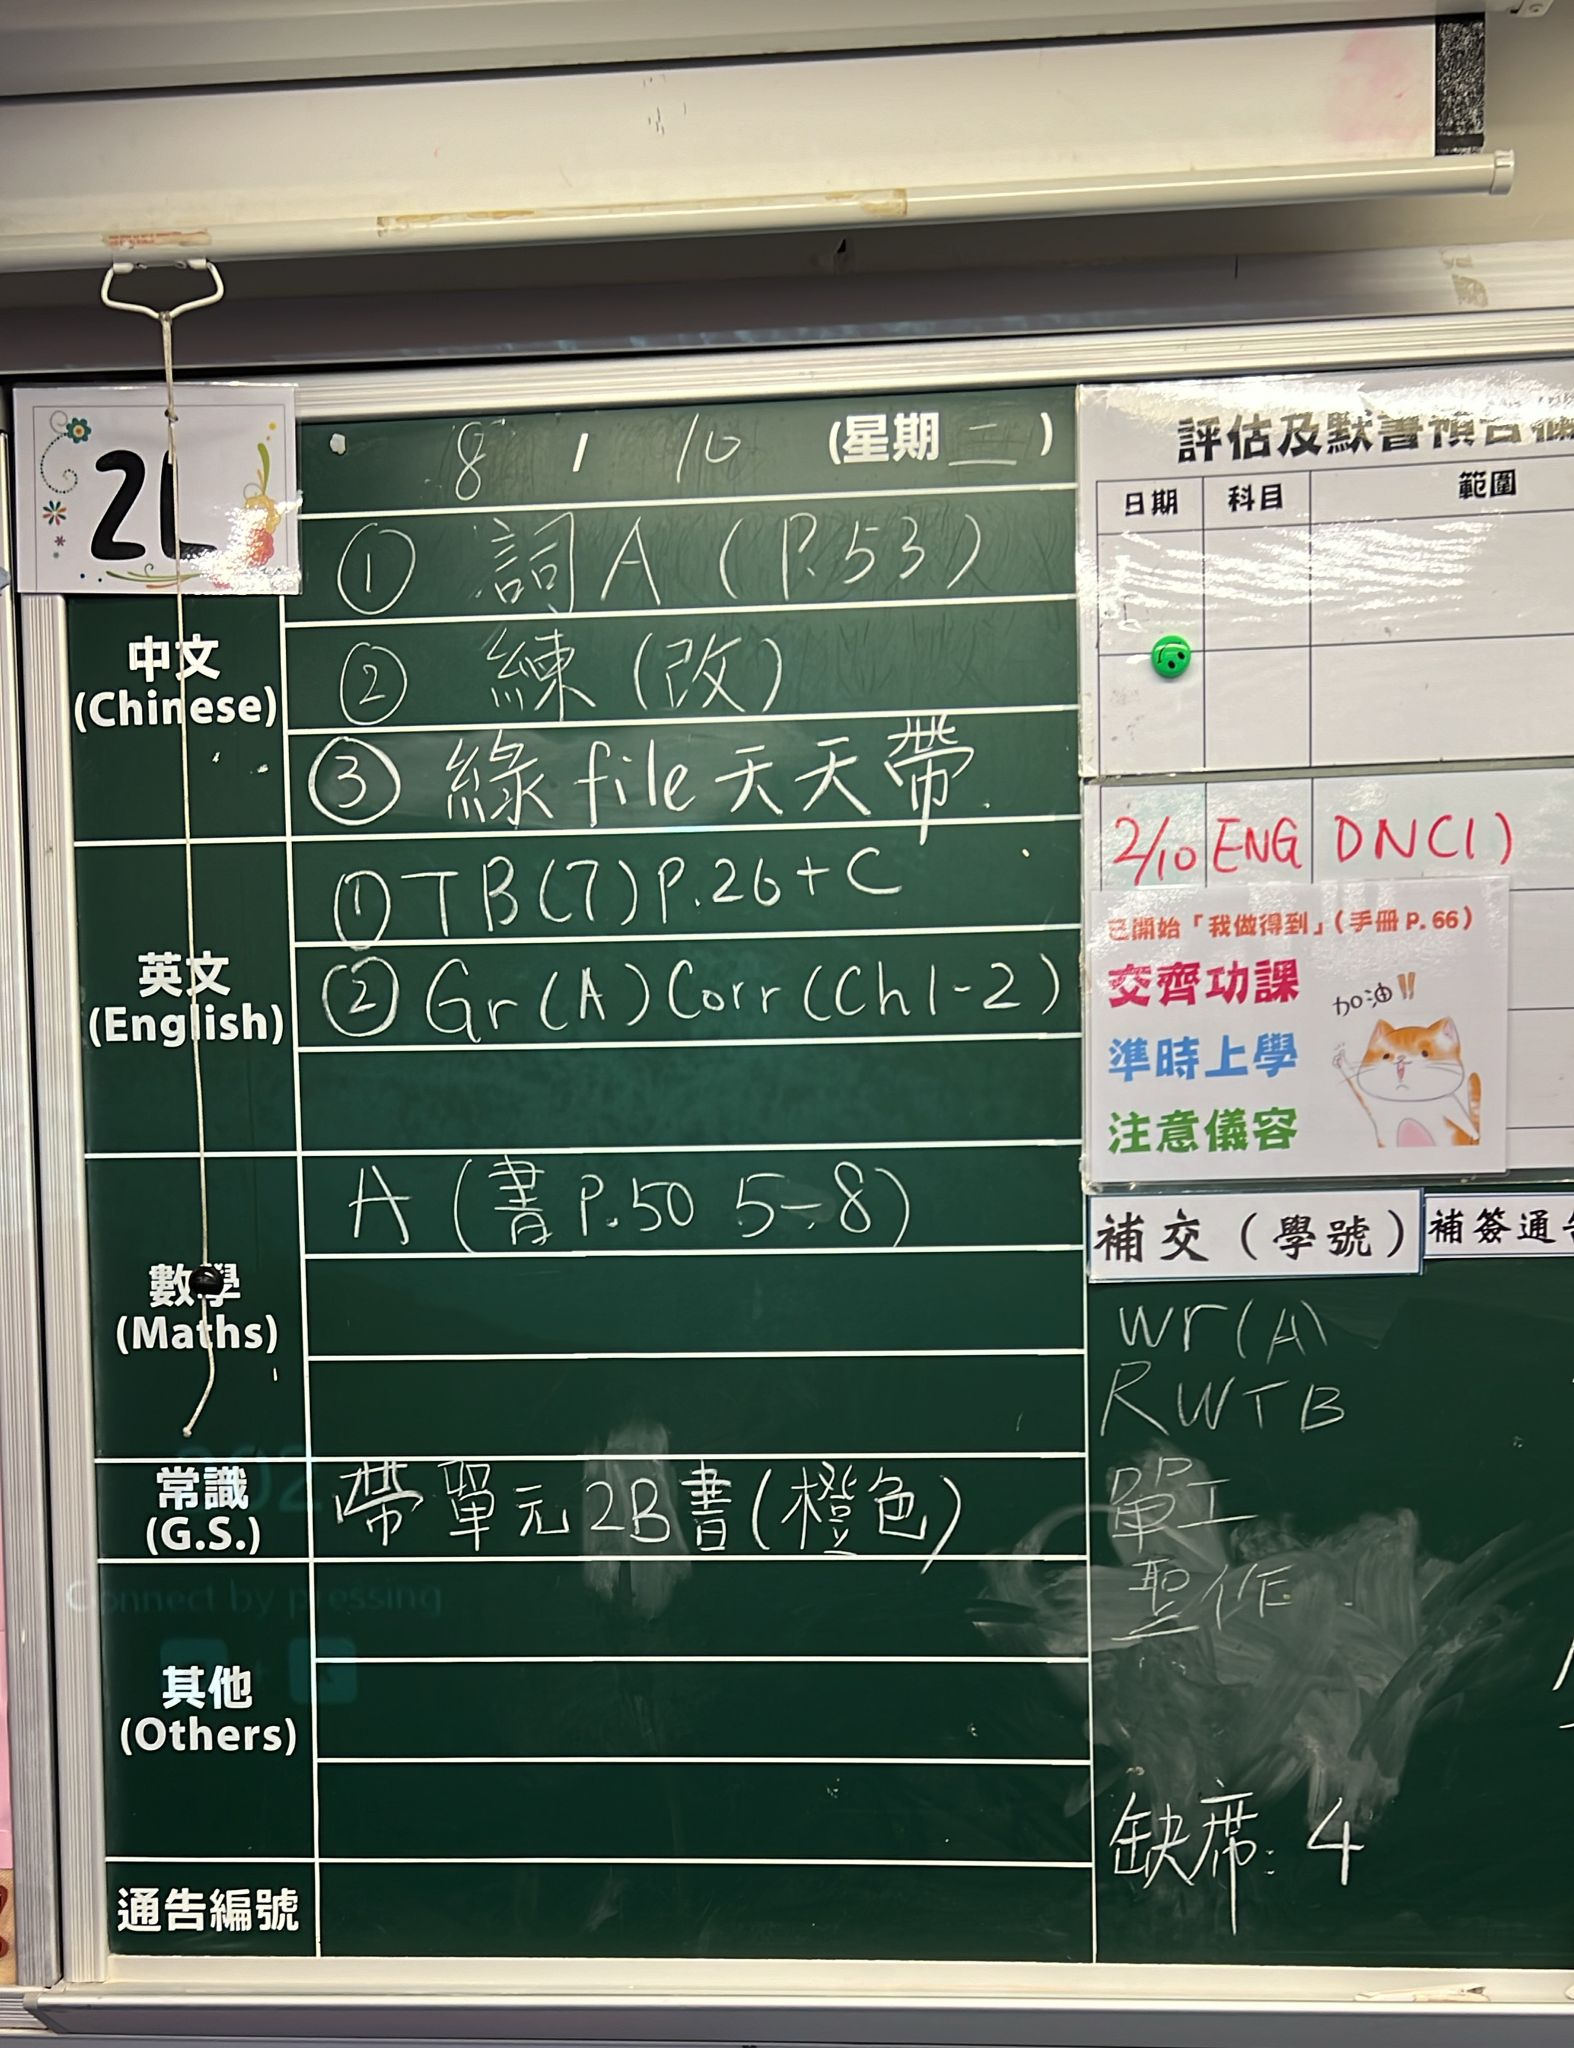 2L
8 / 10 (星期二)
中文
(Chinese)
① 詞A (P.53)
② 練 (改)
③ 綠file天天帶
英文
(English)
① TB(7)P.26+C
② Gr(A)Corr(Ch1-2)
數學
(Maths)
A (書P.50 5-8)
常識
(G.S.)
帶單元2B書(橙色)
Connect by pressing
其他
(Others)
通告編號
評估及默書預告欄
日期 科目 範圍
2/10 ENG DN(1)
已開始「我做得到」(手冊 P. 66)
交齊功課
加油!!
準時上學
注意儀容
補交(學號) 補簽通告
Wr(A)
RWTB
單工
聖作
缺席: 4